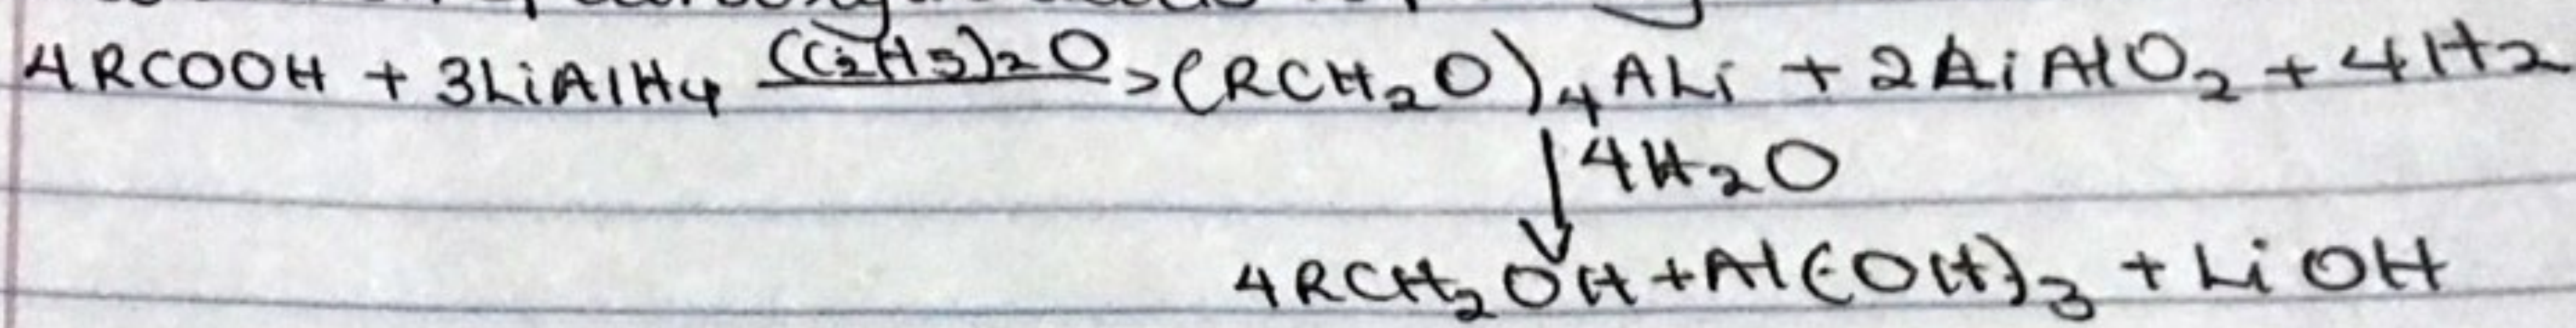 4RCOOH + 3LiAlH4 (C2H5)2O > (RCH2O)4ALi + 2LiAlO2 + 4H2
↓ 4H2O
4RCH2OH + Al(OH)3 + LiOH